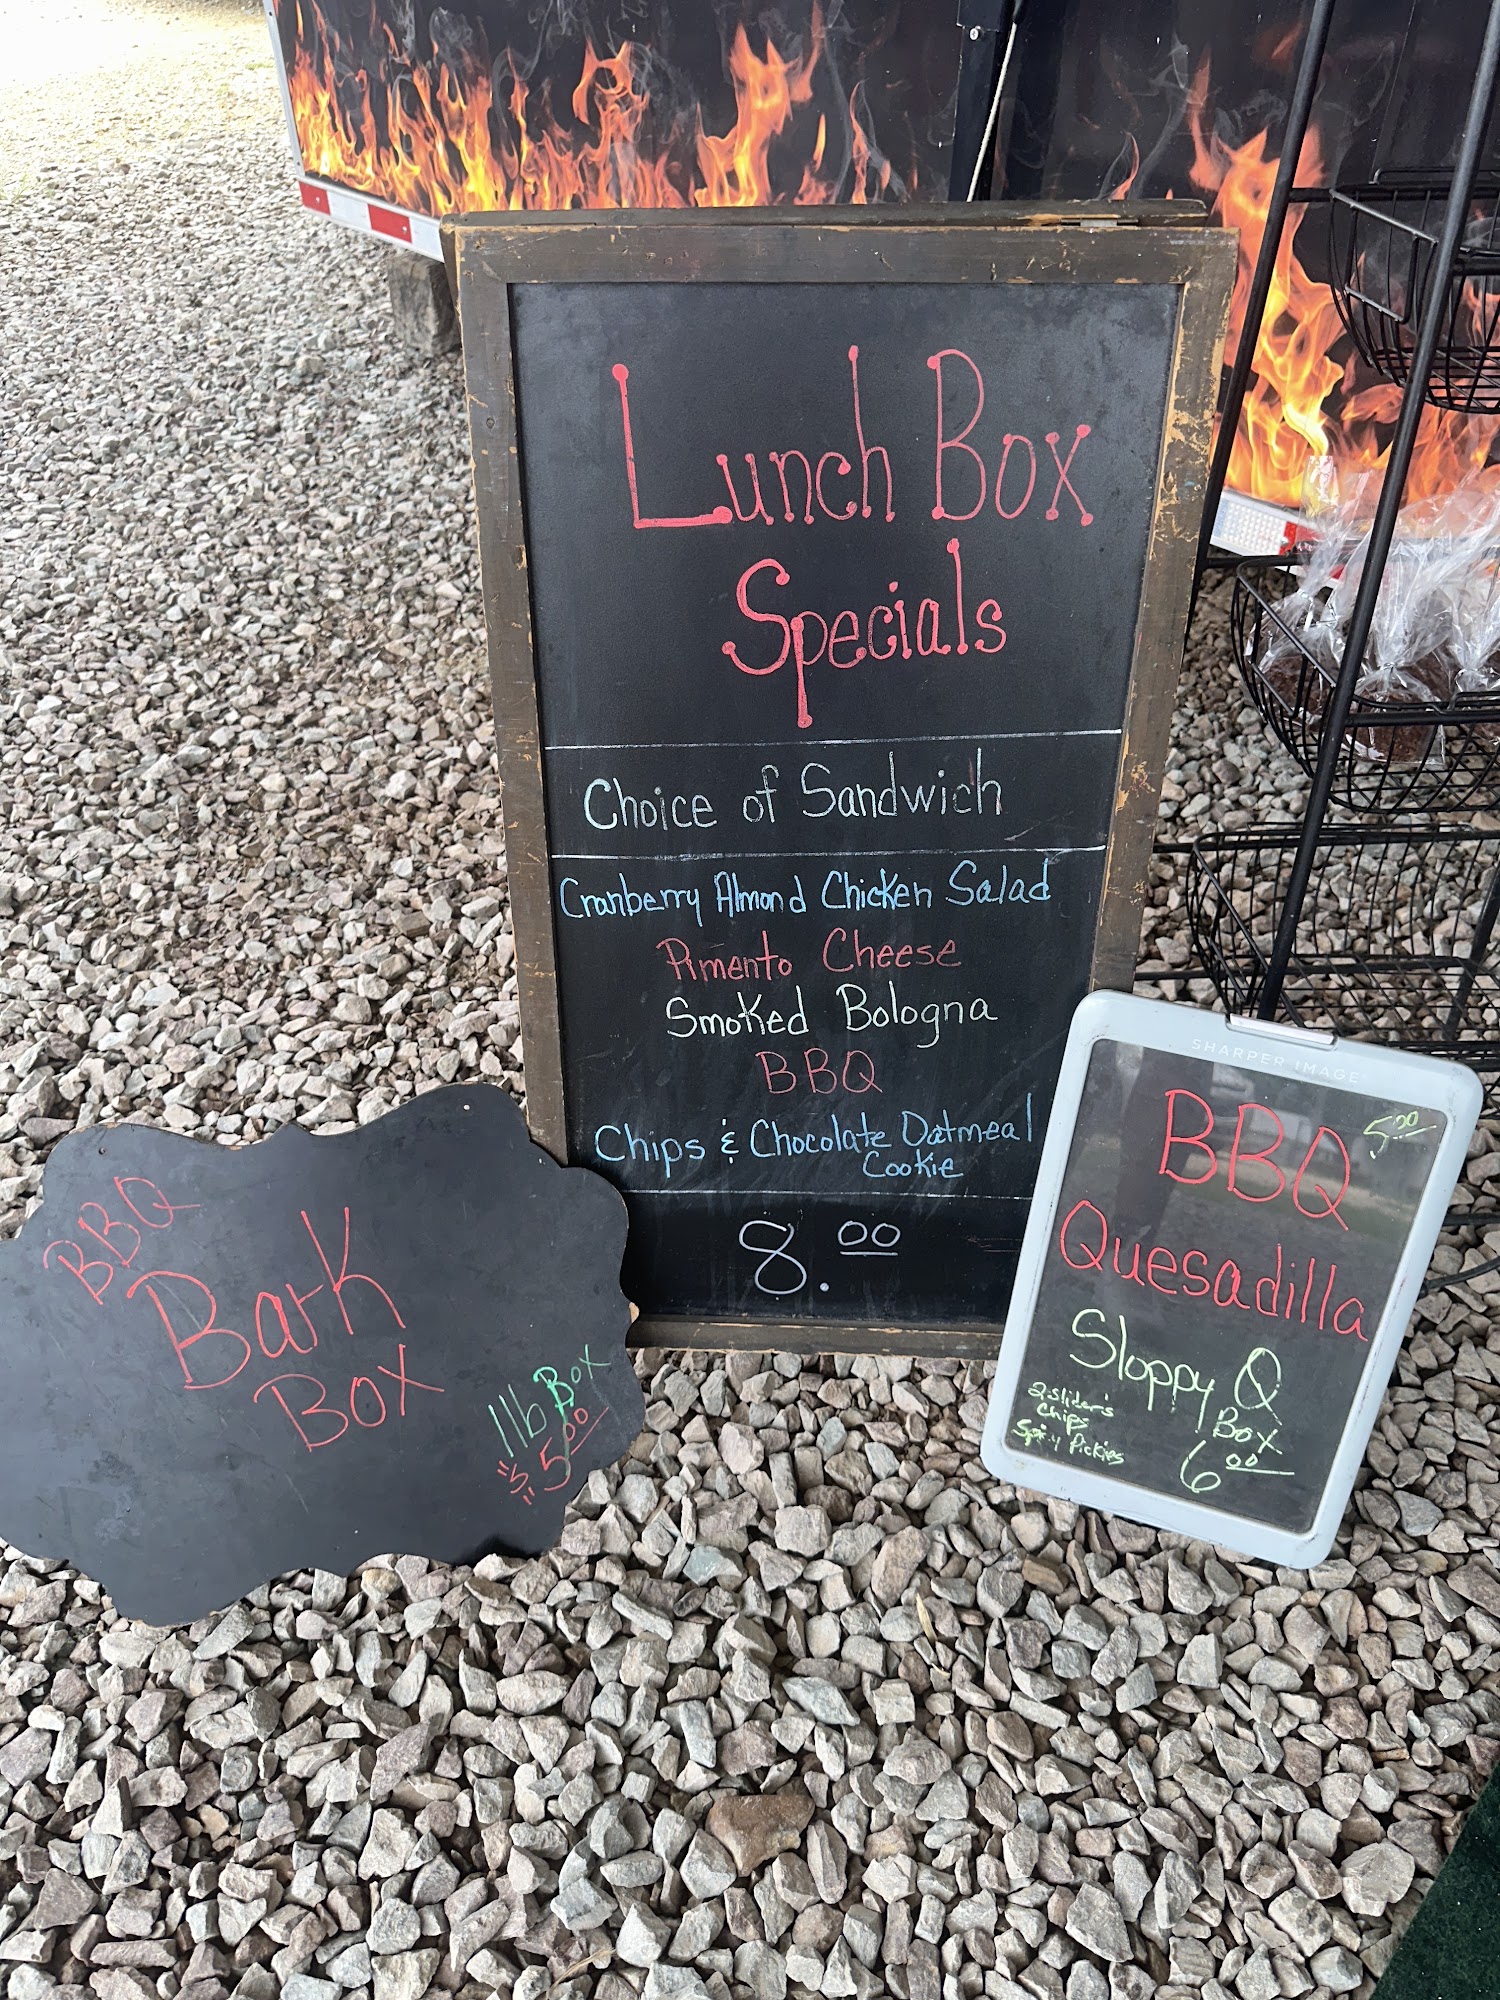 Lunch Box
Specials
Choice of Sandwich
Cranberry Almond Chicken Salad
Pimento Cheese
Smoked Bologna
BBQ
Chips & Chocolate Oatmeal
Cookie
8.00
BBQ
Bark
Box
1lb Box
"5" 5.00
SHARPER IMAGE
5.00
BBQ
Quesadilla
Sloppy Q
Box
6.00
2 slider's
Chips
Spicy Pickles